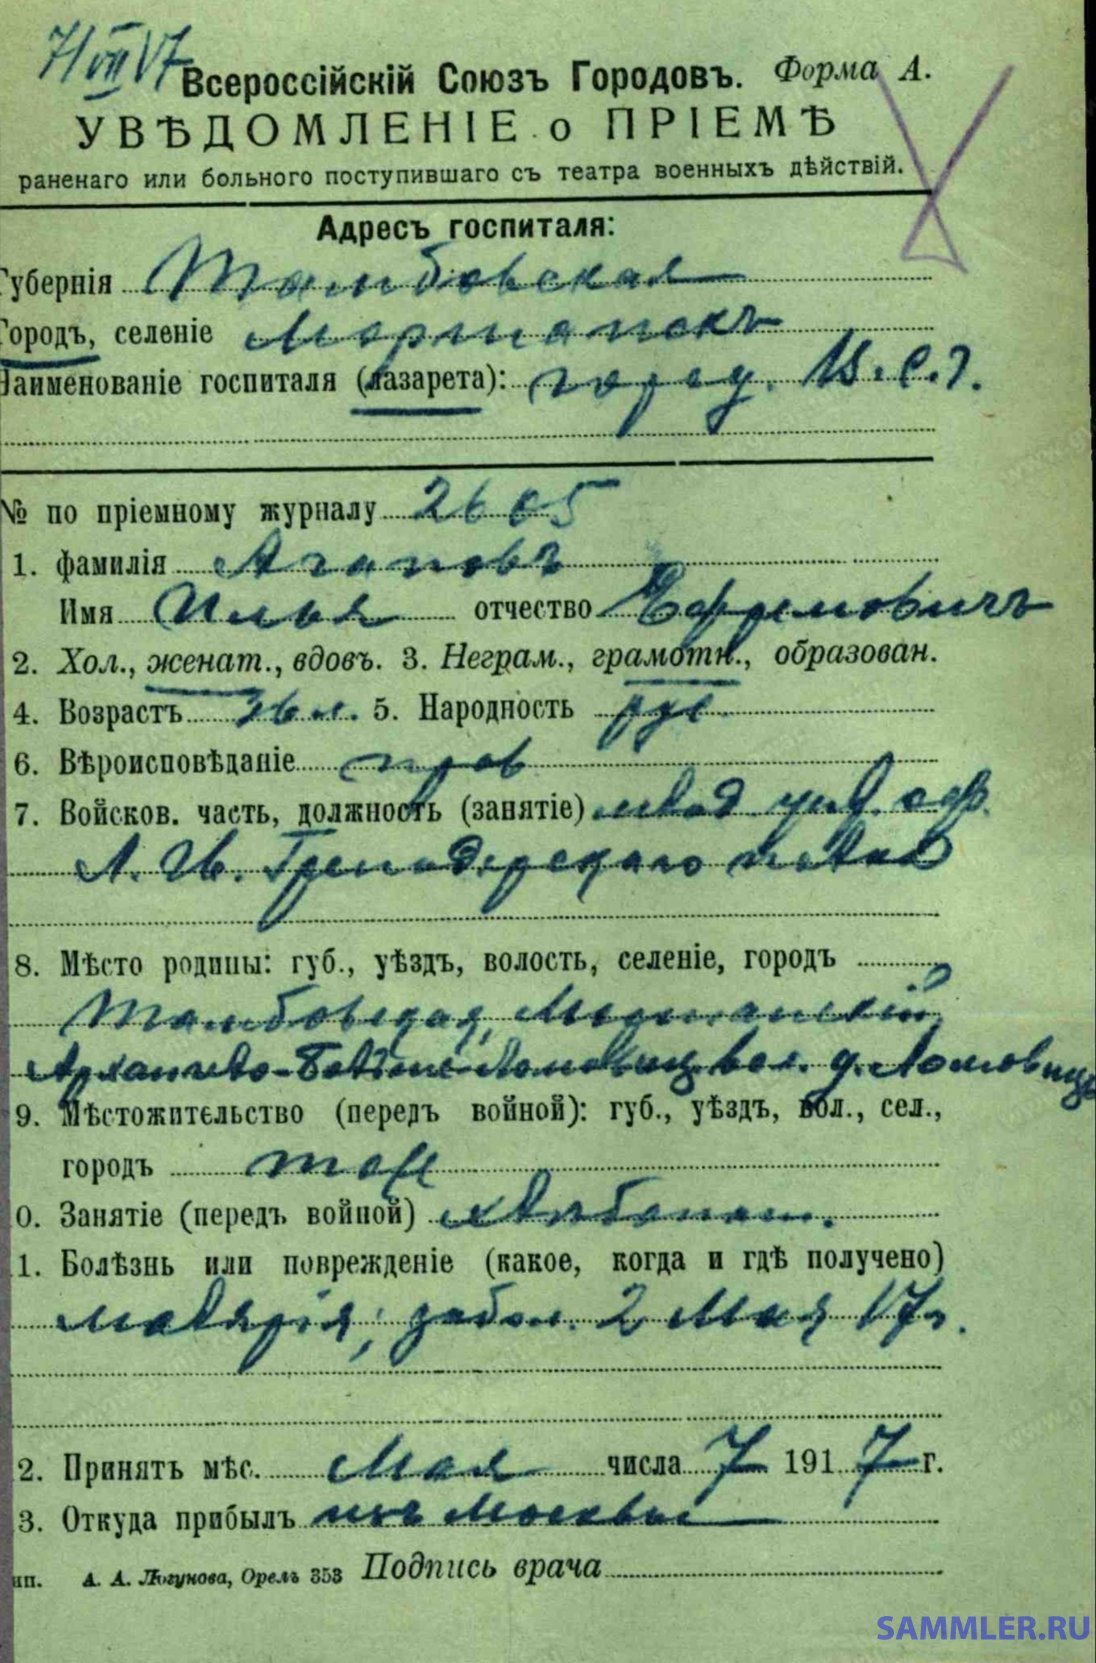 7/VII 17
Всероссійскій Союзъ Городовъ. Форма А.
УВѢДОМЛЕНІЕ о ПРІЕМѢ
раненаго или больного поступившаго съ театра военныхъ дѣйствій.
Адресъ госпиталя:
Губернія Тамбовская
Городъ, селеніе Моршанскъ
Наименованіе госпиталя (лазарета): город. В.С.Г.
№ по пріемному журналу 2605
1. фамилія Агаповъ
Имя Илья отчество Ефремовичъ
2. Хол., женат., вдовъ. 3. Неграм., грамотн., образован.
4. Возрастъ 36 л. 5. Народность рус.
6. Вѣроисповѣданіе прав
7. Войсков. часть, должность (занятіе) млад. унт. оф.
Л. Гв. Гренадерскаго полка
8. Мѣсто родины: губ., уѣздъ, волость, селеніе, городъ
Тамбовская, Моршанскій,
вол. д.
9. Мѣстожительство (передъ войной): губ., уѣздъ, вол., сел.,
городъ тоже
10. Занятіе (передъ войной) хлѣбопаш.
11. Болѣзнь или поврежденіе (какое, когда и гдѣ получено)
малярія, забол. 2 Мая 17 г.
12. Принятъ мѣс. Мая числа 7 1917 г.
13. Откуда прибылъ изъ Москвы
тип. А. А. Логунова, Орелъ 353 Подпись врача
SAMMLER.RU